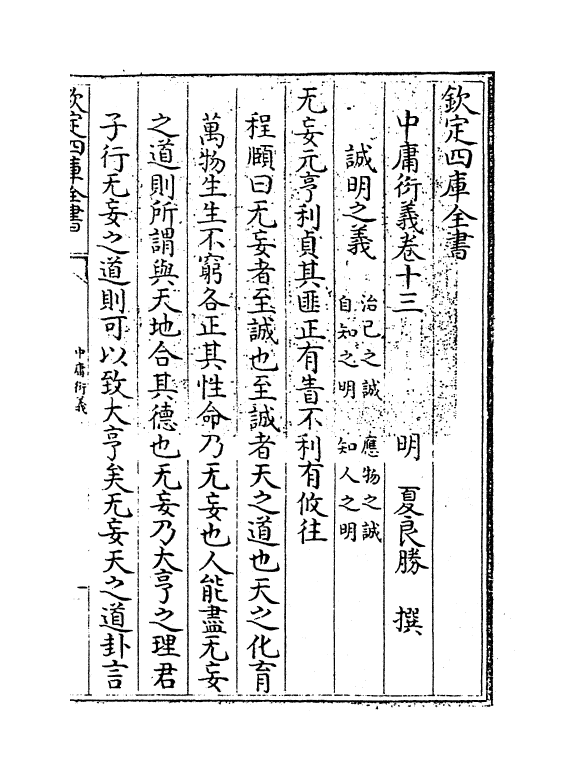 欽定四庫全書
中庸衍義卷十三　明　夏良勝　撰
誠明之義　治已之誠　應物之誠
自知之明　知人之明
无妄元亨利貞其匪正有眚不利有攸往
程頤曰无妄者至誠也至誠者天之道也天之化育
萬物生生不窮各正其性命乃无妄也人能盡无妄
之道則所謂與天地合其德也无妄乃大亨之理君
子行无妄之道則可以致大亨矣无妄天之道卦言
欽定四庫全書
中庸衍義